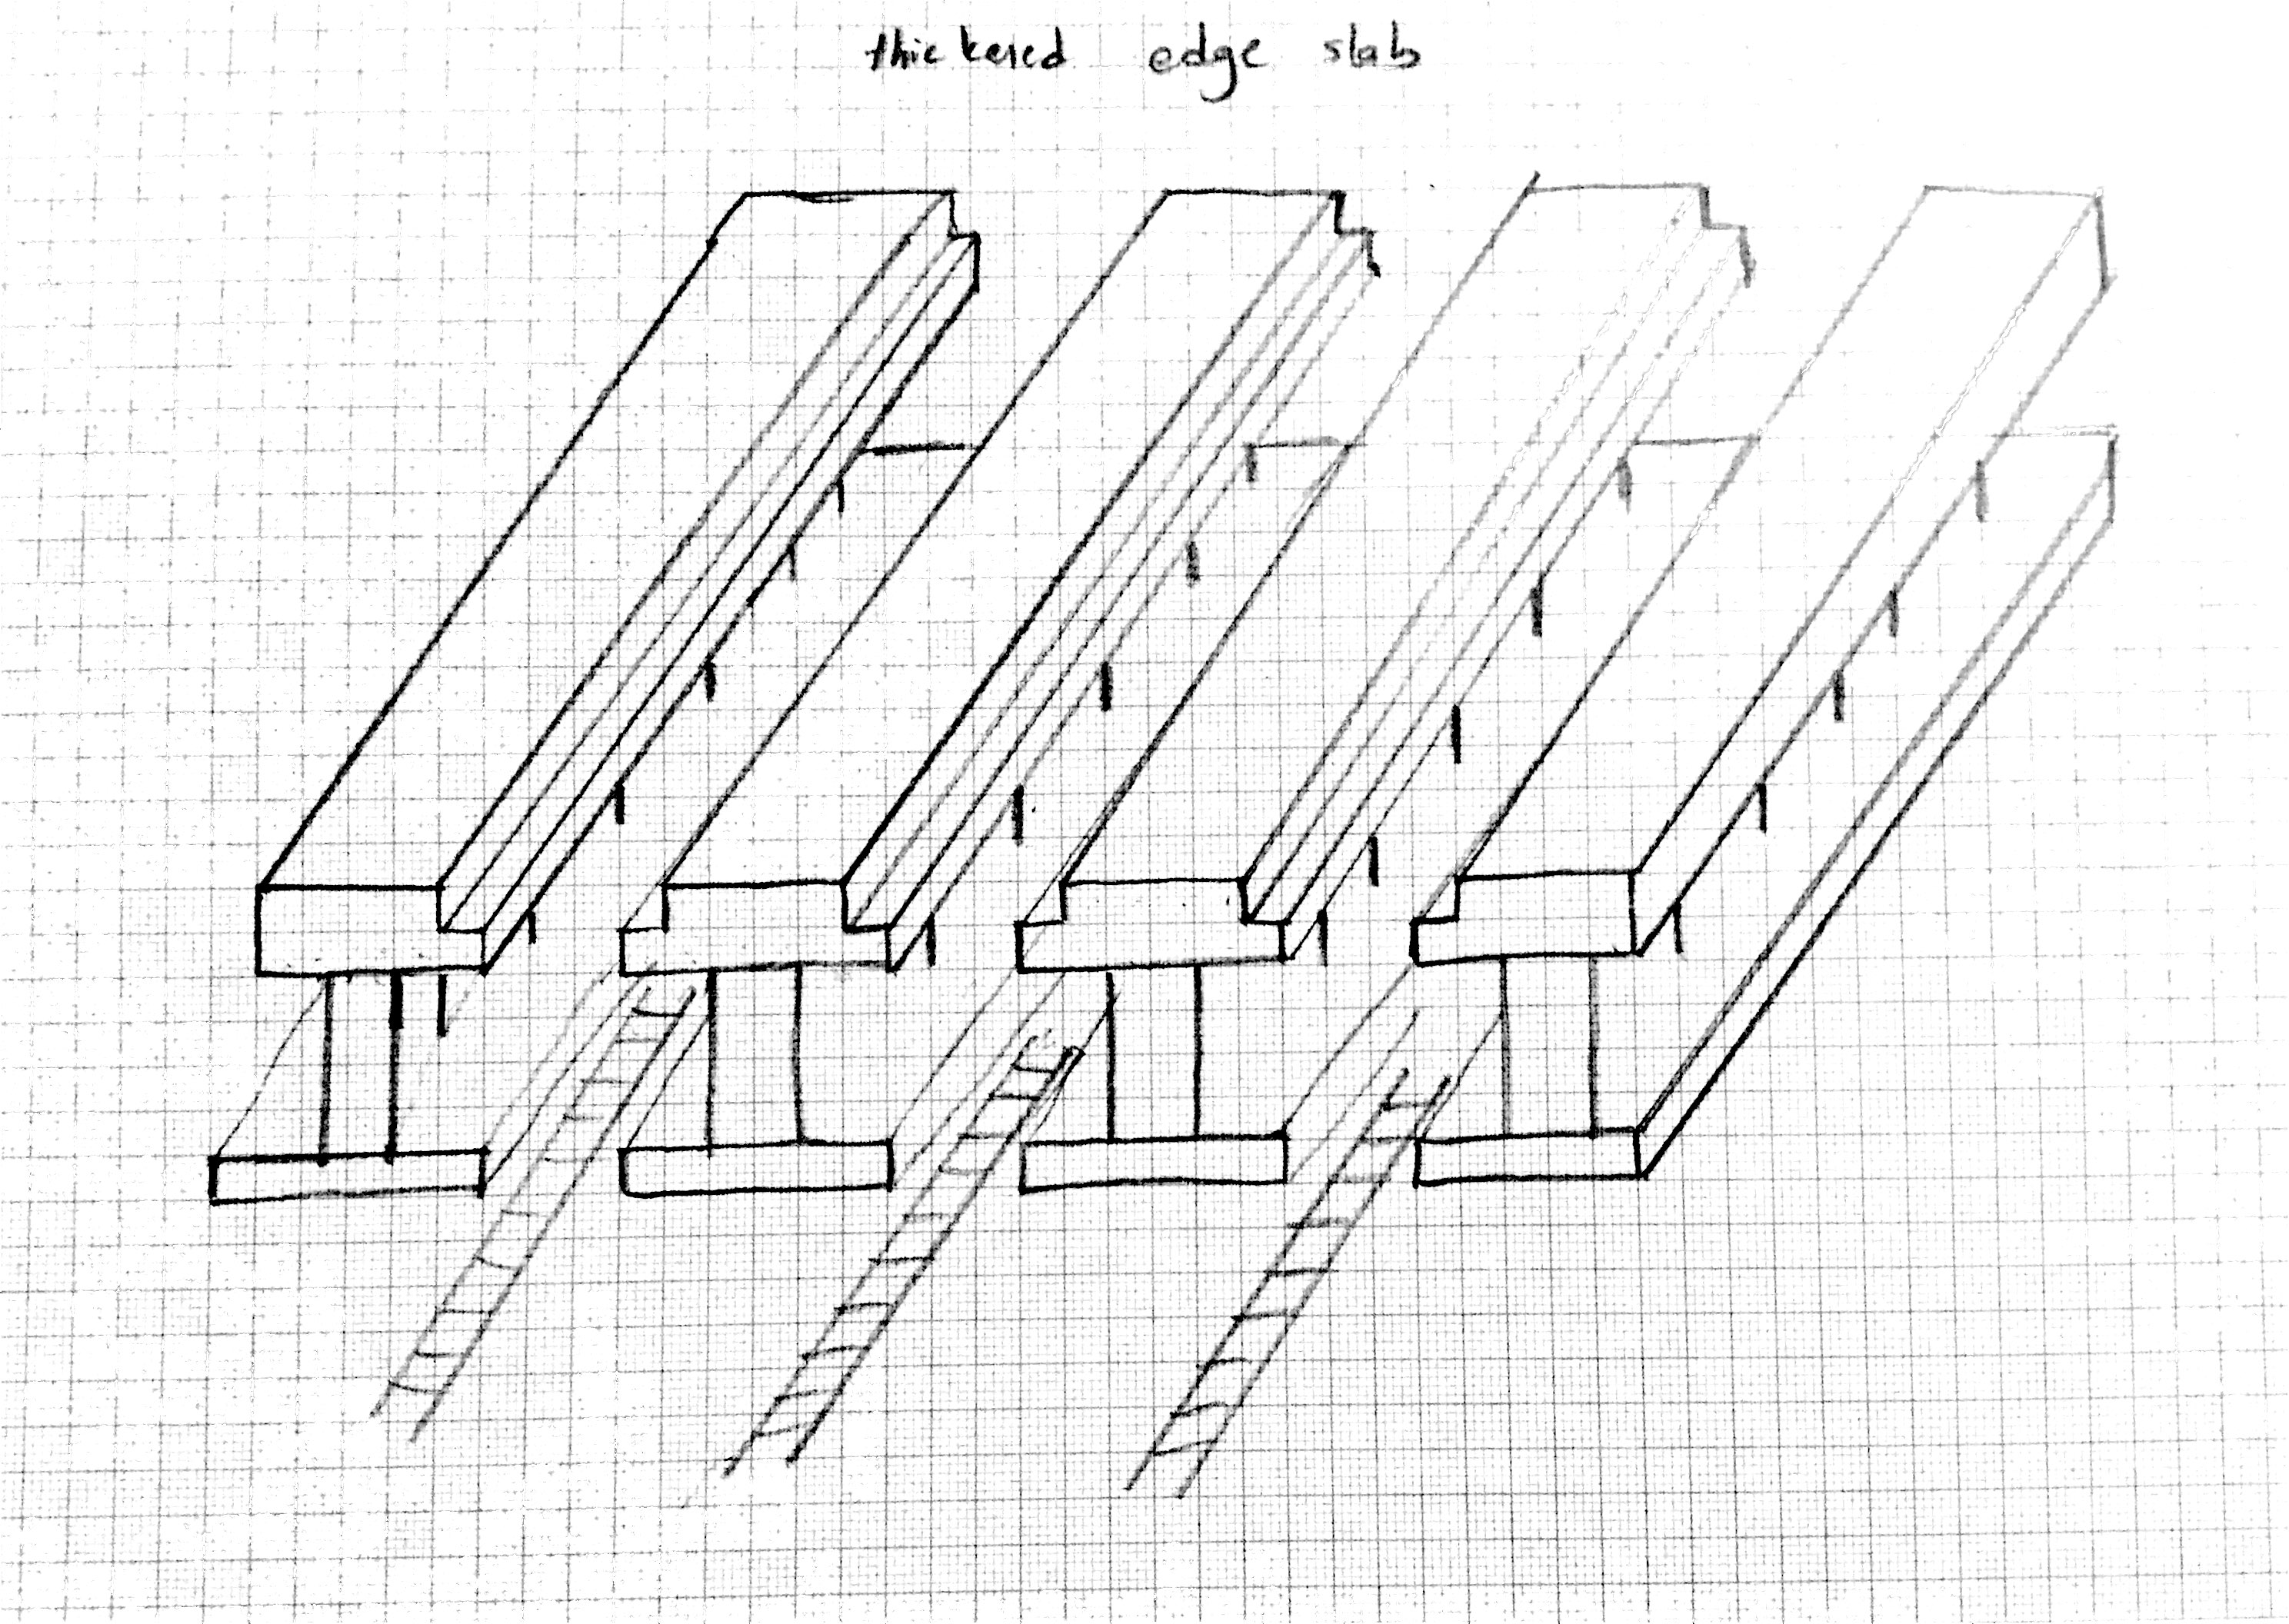 thickened edge slab